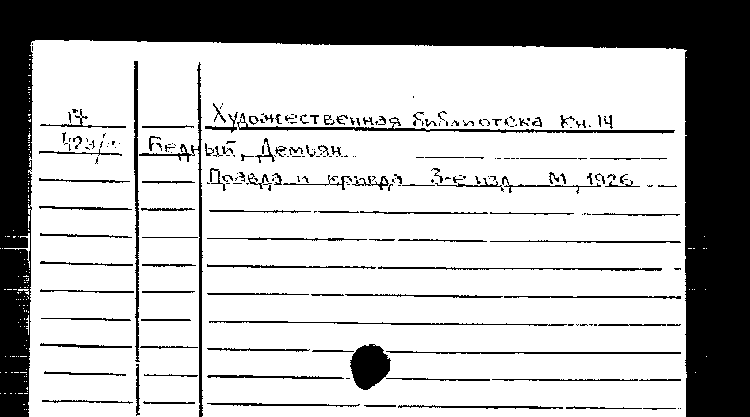 17
Художественная библиотека Кн. 14
Бедный, Демьян
Правда и кривда 3-е изд. М, 1926